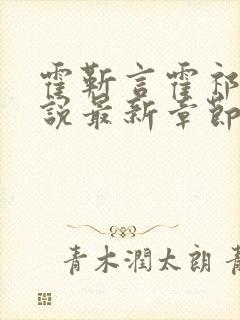 霍靳言霍祁
說最新章節
青木潤太朗 青